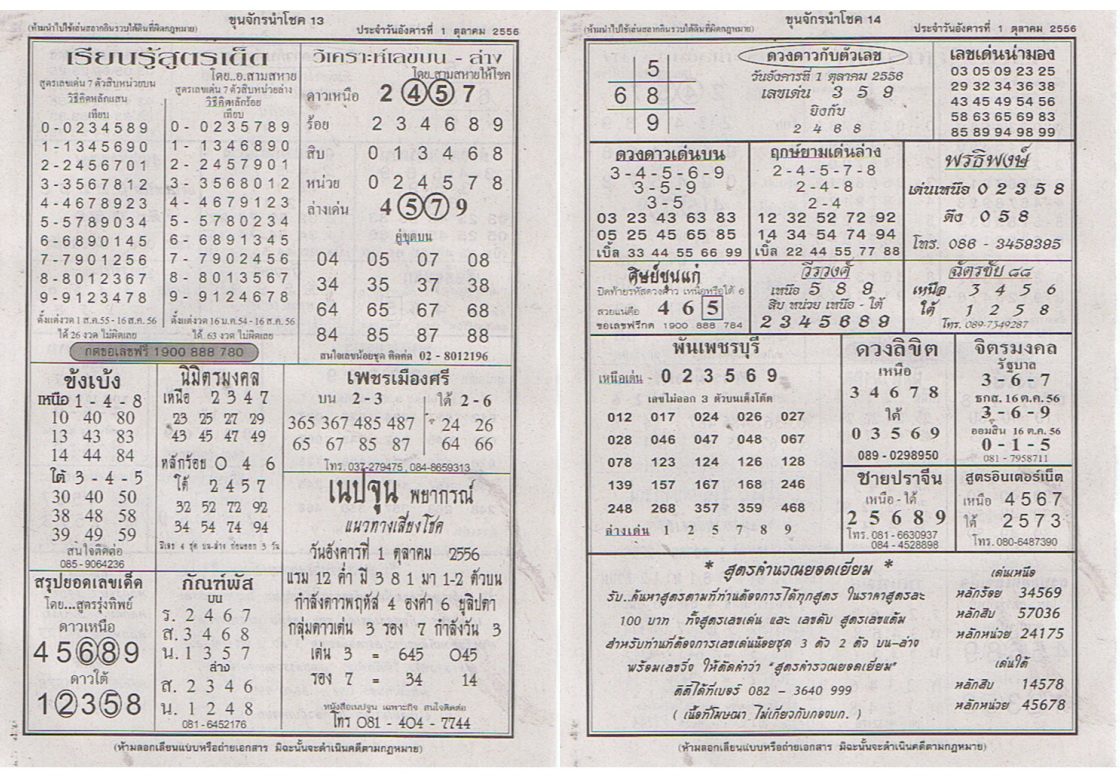 ขุนจักรนำโชค 13
(ห้ามนำไปใช้เล่นสลากกินรวบได้ดินที่ผิดกฎหมาย)
ประจำวันอังคารที่ 1 ตุลาคม 2556
เรียนรู้สูตรเด็ด
โดย..อ.สามสหาย
สูตรเลขเด่น 7 ตัวสิบหน่วยบน
วิธีคิดหลักแสน
เทียบ
0-0234589
1-1345690
2-2456701
3-3567812
4-4678923
5-5789034
6-6890145
7-7901256
8-8012367
9-9123478
ตั้งแต่งวด 1 ส.ค.55 - 16 ส.ค. 56
ได้ 26 งวด ไม่ผิดเลย
สูตรเลขเด่น 7 ตัวสิบหน่วยล่าง
วิธีคิดหลักร้อย
เทียบ
0- 0235789
1- 1346890
2- 2457901
3- 3568012
4- 4679123
5- 5780234
6- 6891345
7- 7902456
8- 8013567
9- 9124678
ตั้งแต่งวด 16 ม.ค.54 - 16 ส.ค. 56
ได้. 63 งวด ไม่ผิดเลย
กดขอเลขฟรี 1900 888 780
วิเคราะห์เลขบน - ล่าง
โดย..สามสหายให้โชค
ดาวเหนือ 2 4 5 7
ร้อย 2 3 4 6 8 9
สิบ 0 1 3 4 6 8
หน่วย 0 2 4 5 7 8
ล่างเด่น 4 5 7 9
คู่ชุดบน
04 05 07 08
34 35 37 38
64 65 67 68
84 85 87 88
สนใจเลขน้อยชุด ติดต่อ 02 - 8012196
ขังเบ้ง
เหนือ 1 - 4 - 8
10 40 80
13 43 83
14 44 84
ใต้ 3 - 4 - 5
30 40 50
38 48 58
39 49 59
สนใจติดต่อ
085-9064236
นิมิตรมงคล
เหนือ 2 3 4 7
23 25 27 29
43 45 47 49
หลักร้อย 0 4 6
ใต้ 2 4 5 7
32 52 72 92
34 54 74 94
เพชรเมืองศรี
บน 2 - 3
365 367 485 487
65 67 85 87
ใต้ 2 - 6
24 26
64 66
โทร. 037-279475 , 084-8659313
เนปจูน พยากรณ์
แนวทางเสี่ยงโชค
วันอังคารที่ 1 ตุลาคม 2556
แรม 12 ค่ำ มี 3 8 1 มา 1-2 ตัวบน
กำลังดาวพฤหัส 4 องศา 6 ยูลิปดา
กลุ่มดาวเด่น 3 รอง 7 กำลังวัน 3
เด่น 3 = 645 045
รอง 7 = 34 14
หนังสือเนปจูน เฉพาะกิจ สนใจติดต่อ
โทร 081 - 404 - 7744
สรุปยอดเลขเด็ด
โดย...สูตรรุ่งทิพย์
ดาวเหนือ
4 5 6 8 9
ดาวใต้
1 2 3 5 8
กัณฑ์พัส
บน
ร. 2 4 6 7
ส. 3 4 6 8
น. 1 3 5 7
ล่าง
ส. 2 3 4 6
น. 1 2 4 8
081-6452176
(ห้ามลอกเลียนแบบหรือถ่ายเอกสาร มิฉะนั้นจะดำเนินคดีตามกฎหมาย)
ขุนจักรนำโชค 14
(ห้ามนำไปใช้เล่นสลากกินรวบได้ดินที่ผิดกฎหมาย)
ประจำวันอังคารที่ 1 ตุลาคม 2556
5
6 8
9
ดวงดาวกับตัวเลข
วันอังคารที่ 1 ตุลาคม 2556
เลขเด่น 3 5 9
ยิงกับ
2 4 6 8
เลขเด่นน่ามอง
03 05 09 23 25
29 32 34 36 38
43 45 49 54 56
58 63 65 69 83
85 89 94 98 99
ดวงดาวเด่นบน
3-4-5-6-9
3-5-9
3-5
03 23 43 63 83
05 25 45 65 85
เบิ้ล 33 44 55 66 99
ฤกษ์ยามเด่นล่าง
2-4-5-7-8
2-4-8
2-4
12 32 52 72 92
14 34 54 74 94
เบิ้ล 22 44 55 77 88
พรธิพงษ์
เด่นเหนือ 0 2 3 5 8
ดึง 0 5 8
โทร. 086 - 3459395
ศิษย์ขุนแก้
ปิดท้ายรหัสดวงดาว เหนือหรือใต้ 6
สวยแนคือ 4 6 5
ขอเลขฟรีกด 1900 888 784
วีรวงศ์
เหนือ 5 8 9
สิบ หน่วย เหนือ - ใต้
2 3 4 5 6 8 9
ฉัตรชัย ๘๘
เหนือ 3 4 5 6
ใต้ 1 2 5 8
โทร. 089-7349287
พันเพชรบุรี
เหนือเด่น - 0 2 3 5 6 9
เลขไม่ออก 3 ตัวบนเต็งโต๊ด
012 017 024 026 027
028 046 047 048 067
078 123 124 126 128
139 157 167 168 246
248 268 357 359 468
ล่างเด่น 1 2 5 7 8 9
ดวงลิขิต
เหนือ
3 4 6 7 8
ใต้
0 3 5 6 9
089 - 0298950
จิตรมงคล
รัฐบาล
3 - 6 - 7
ธกส. 16 ต.ค. 56
3 - 6 - 9
ออมสิน 16 ต.ค. 56
0 - 1 - 5
081 - 7958711
ชายปราจีน
เหนือ - ใต้
2 5 6 8 9
โทร. 081 - 6630937
084 - 4528898
สูตรอินเตอร์เน็ต
เหนือ 4 5 6 7
ใต้ 2 5 7 3
โทร.080-6487390
* สูตรคำนวณยอดเยี่ยม *
รับ..ค้นหาสูตรตามที่ท่านต้องการได้ทุกสูตร ในราคาสูตรละ
100 บาท ทั้งสูตรเลขเด่น และ เลขดับ สูตรเลขแต้ม
สำหรับท่านที่ต้องการเลขเด่นน้อยชุด 3 ตัว 2 ตัว บน-ล่าง
พร้อมเลขวิ่ง ให้ตัดคำว่า "สูตรคำรวณยอดเยี่ยม"
ติดได้ที่เบอร์ 082 - 3640 999
( เนื้อที่โฆษณา ไม่เกี่ยวกับกองบก. )
เด่นเหนือ
หลักร้อย 34569
หลักสิบ 57036
หลักหน่วย 24175
เด่นใต้
หลักสิบ 14578
หลักหน่วย 45678
(ห้ามลอกเลียนแบบหรือถ่ายเอกสาร มิฉะนั้นจะดำเนินคดีตามกฎหมาย)